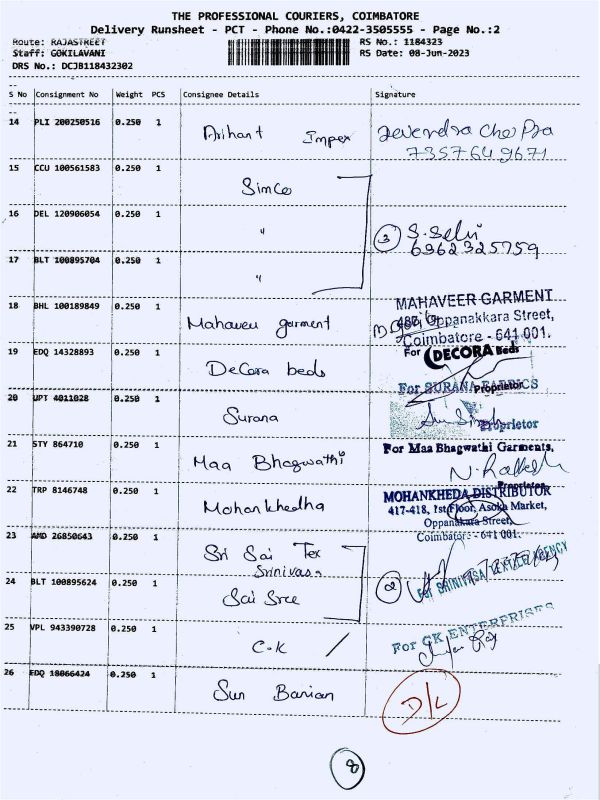 THE PROFESSIONAL COURIERS, COIMBATORE
Delivery Runsheet - PCT - Phone No.:0422-3505555 - Page No.:2
Route: RAJASTREET RS No.: 1184323
Staff: GOKILAVANI RS Date: 08-Jun-2023
DRS No.: DCJB118432302
S No Consignment No Weight PCS Consignee Details Signature
14 PLI 200250516 0.250 1 Arihant Impex Devendra Chopra
7357649671
15 CCU 100561583 0.250 1 Simco
16 DEL 120906054 0.250 1 " 3 S. Selvi
6962325759
17 BLT 100895704 0.250 1 "
MAHAVEER GARMENT
18 BHL 100189849 0.250 1 Mahaveer garment 487, Oppanakkara Street,
Coimbatore - 641 001.
19 EDQ 14328893 0.250 1 DeCora beds For DECORA Beds
Proprietor
20 UPT 4011028 0.250 1 Surana For SURANA FABRICS
Proprietor
21 STY 864710 0.250 1 Maa Bhagwathi For Maa Bhagwathi Garments,
N. Rakesh
Proprietor
22 TRP 8146748 0.250 1 Mohankhedha MOHANKHEDA DISTRIBUTOR
417-418, 1st Floor, Asoka Market,
Oppanakara Street,
Coimbatore - 641 001.
23 AMD 26850643 0.250 1 Sri Sai Tex
Srinivasa
24 BLT 100895624 0.250 1 Sai Sree 2 For SRINIVASA TEXTILE AGENCY
25 VPL 943390728 0.250 1 C.K / For CK ENTERPRISES
26 EDQ 18066424 0.250 1 Sun Banian D/L
8